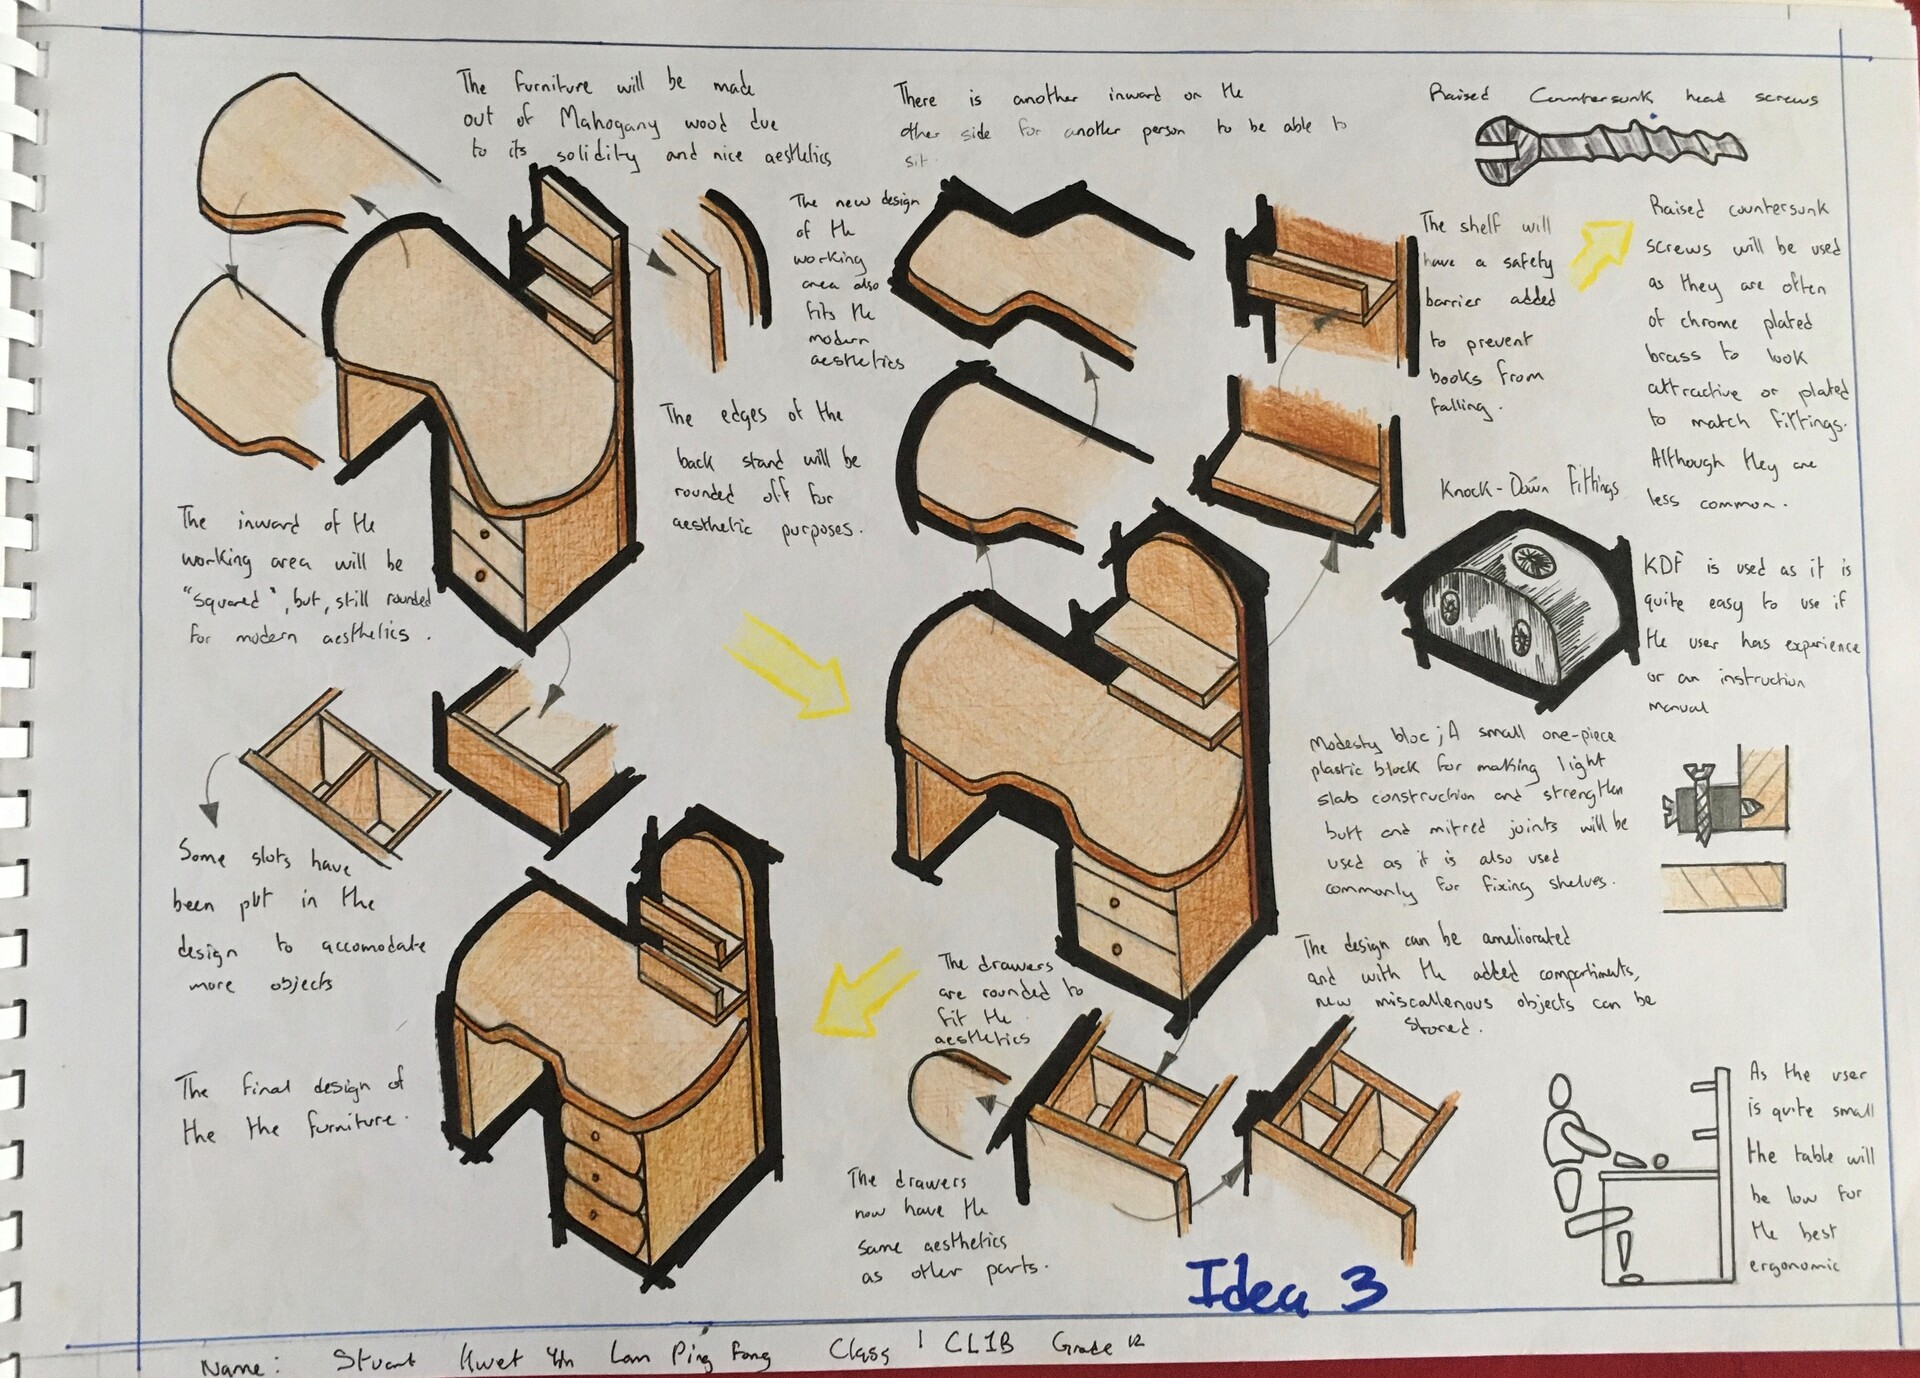 The furniture will be made
out of Mahogany wood due
to its solidity and nice aesthetics
There is another inward on the
other side for another person to be able to
sit.
Raised Countersunk head screws
The new design
of the
working
area also
fits the
modern
aesthetics
The shelf will
have a safety
barrier added
to prevent
books from
falling.
Raised countersunk
screws will be used
as they are often
of chrome plated
brass to look
attractive or plated
to match fittings.
Although they are
less common.
The edges of the
back stand will be
rounded off for
aesthetic purposes.
The inward of the
working area will be
"squared", but, still rounded
for modern aesthetics.
Knock-Down Fittings
KDF is used as it is
quite easy to use if
the user has experience
or an instruction
manual
Modesty bloc; A small one-piece
plastic block for making light
slab construction and strengthen
butt and mitred joints will be
used as it is also used
commonly for fixing shelves.
Some slots have
been put in the
design to accomodate
more objects
The design can be ameliorated
and with the added compartiments,
new miscallenous objects can be
stored.
The drawers
are rounded to
fit the
aesthetics
The final design of
the the furniture.
The drawers
now have the
same aesthetics
as other parts.
As the user
is quite small
the table will
be low for
the best
ergonomic
Idea 3
Name: Stuart Kwet Yin Lam Ping Fong Class: CL1B Grade 12